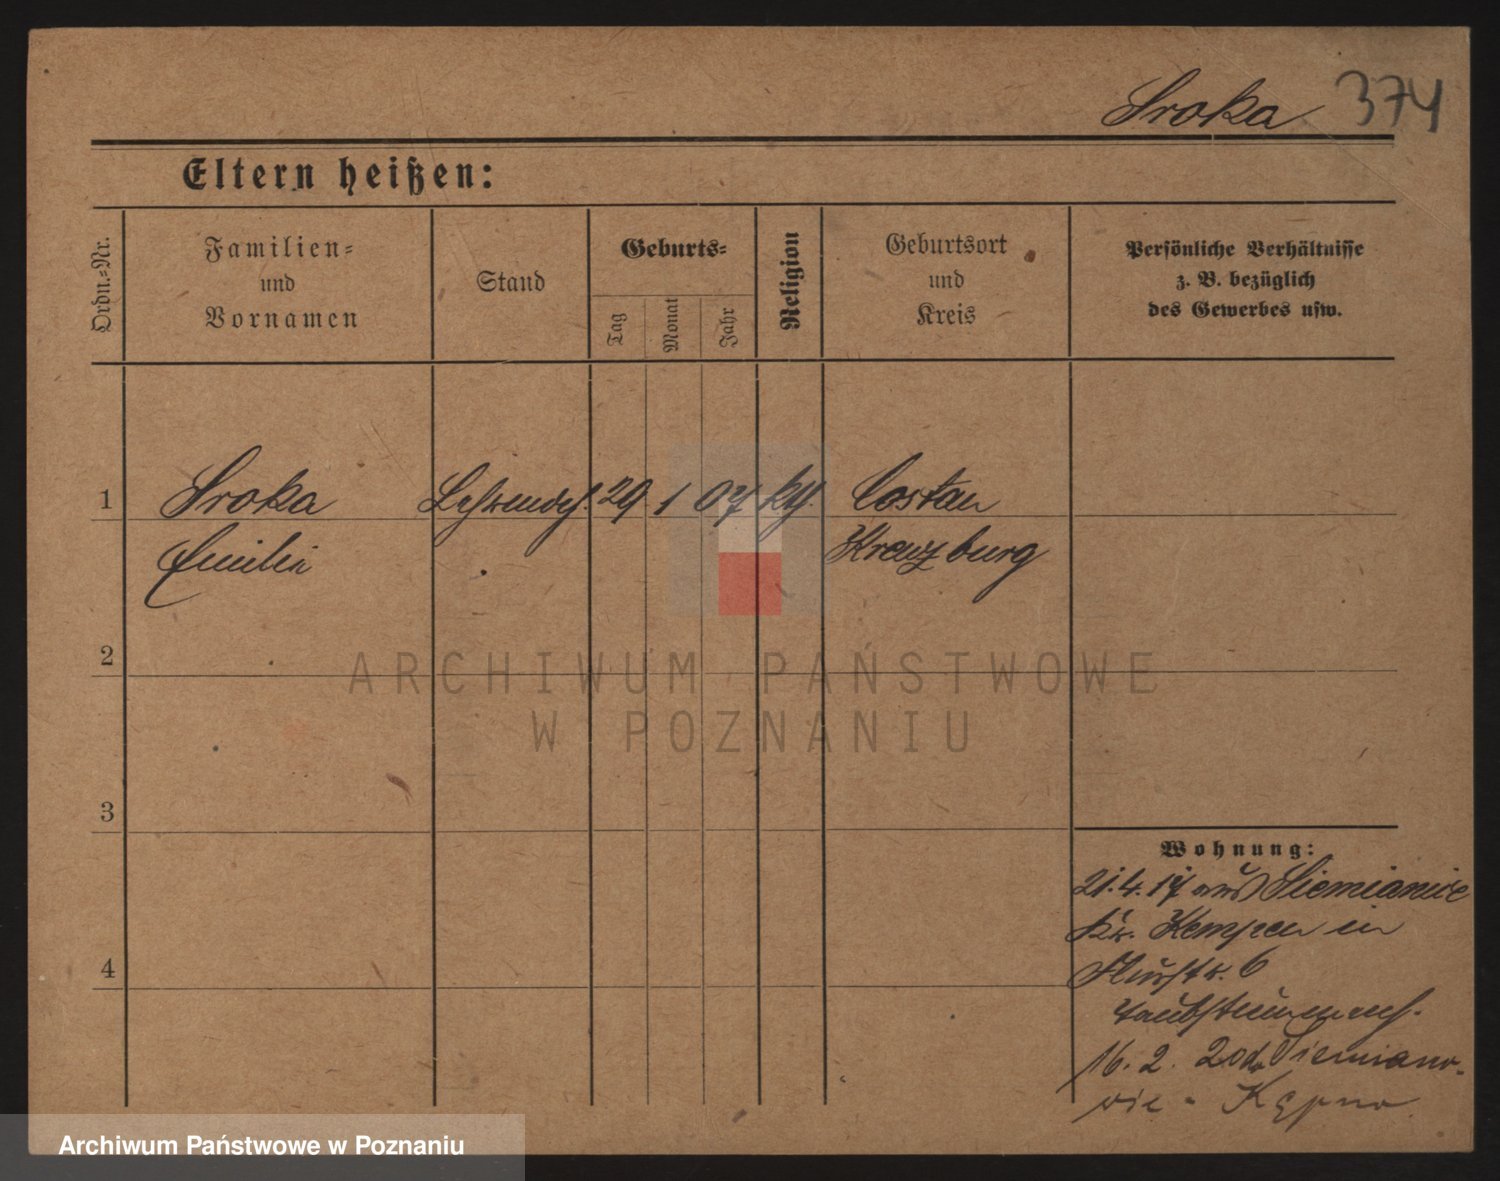 Sroka 374
Eltern heißen:
Ordn.=Nr.
Familien=
und
Vornamen
Stand
Geburts=
Tag
Monat
Jahr
Religion
Geburtsort
und
Kreis
Persönliche Verhältnisse
z. B. bezüglich
des Gewerbes usw.
1 Sroka 29. 1 07 kth. Costau
Emilie Kreuzburg
2
3
4
Wohnung:
21.4.17 aus Siemianice
Kr. Kempen in
6
Taubstummenst.
16.2.20 Siemiano-
wice - Kępno
ARCHIWUM PAŃSTWOWE
W POZNANIU
Archiwum Państwowe w Poznaniu